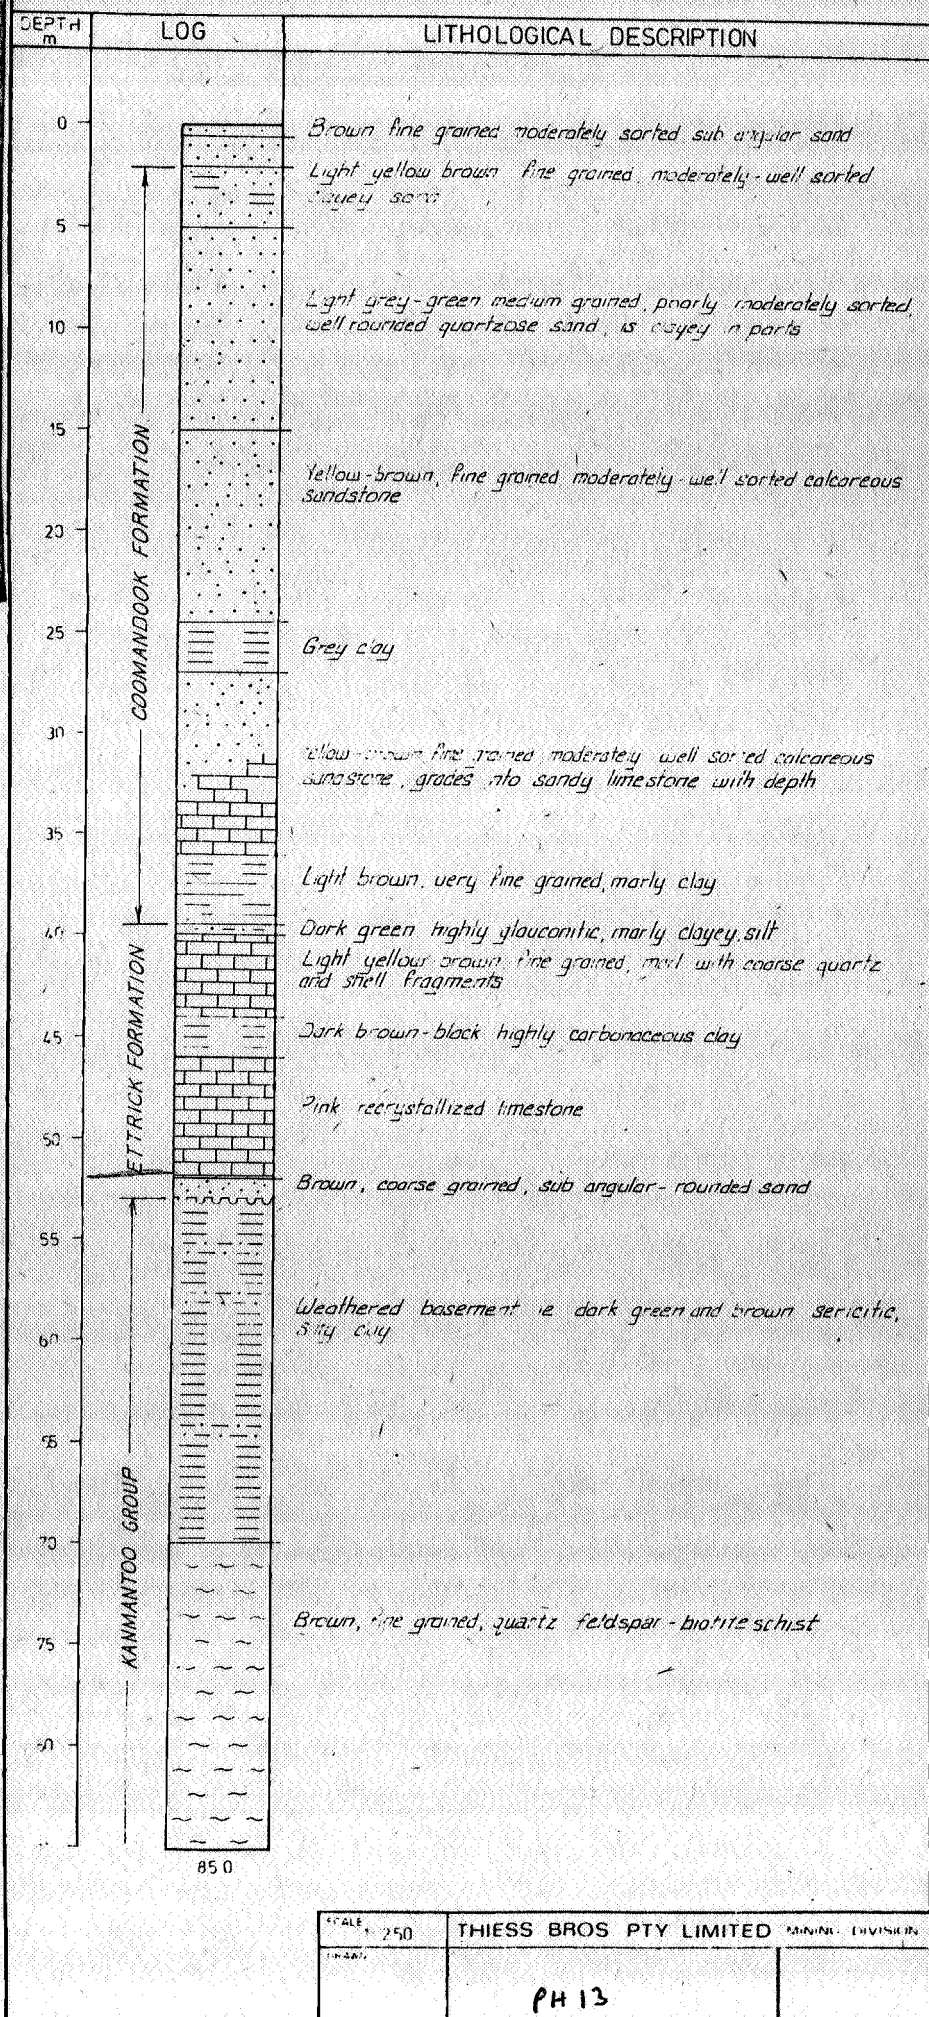 DEPTH m LOG LITHOLOGICAL DESCRIPTION
0
Brown fine grained moderately sorted sub angular sand
Light yellow brown fine grained, moderately-well sorted
clayey sand
5
Light grey-green medium grained, poorly moderately sorted,
well rounded quartzose sand, is clayey in parts
10
15
Yellow-brown, fine grained moderately-well sorted calcareous
sandstone
20
COOMANDOOK FORMATION
25
Grey clay
30
Yellow-brown fine grained moderately well sorted calcareous
sandstone, grades into sandy limestone with depth
35
Light brown, very fine grained, marly clay
40
Dark green highly glauconitic, marly clayey, silt
Light yellow brown, fine grained, marl with coarse quartz
and shell fragments
ETTRICK FORMATION
45
Dark brown-black highly carbonaceous clay
Pink recrystallized limestone
50
Brown, coarse grained, sub angular-rounded sand
55
Weathered basement ie dark green and brown sericitic,
silty clay
60
65
70
KANMANTOO GROUP
Brown, fine grained, quartz feldspar-biotite schist
75
80
85.0
SCALE 1:250 THIESS BROS PTY LIMITED MINING DIVISION
DRAWN
PH 13